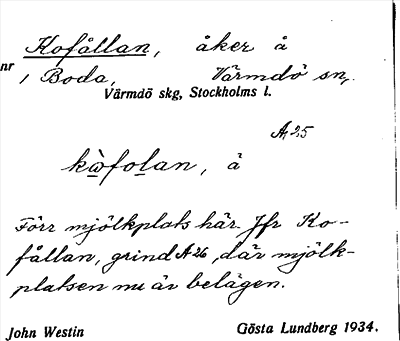 Kofållan, åker å
nr 1 Boda, Värmdö sn,
Värmdö skg, Stockholms l.
A, 25
kὼfolan, å
Förr mjölkplats här. Jfr Ko-
fållan, grind A 26, där mjölk-
platsen nu är belägen.
John Westin Gösta Lundberg 1934.